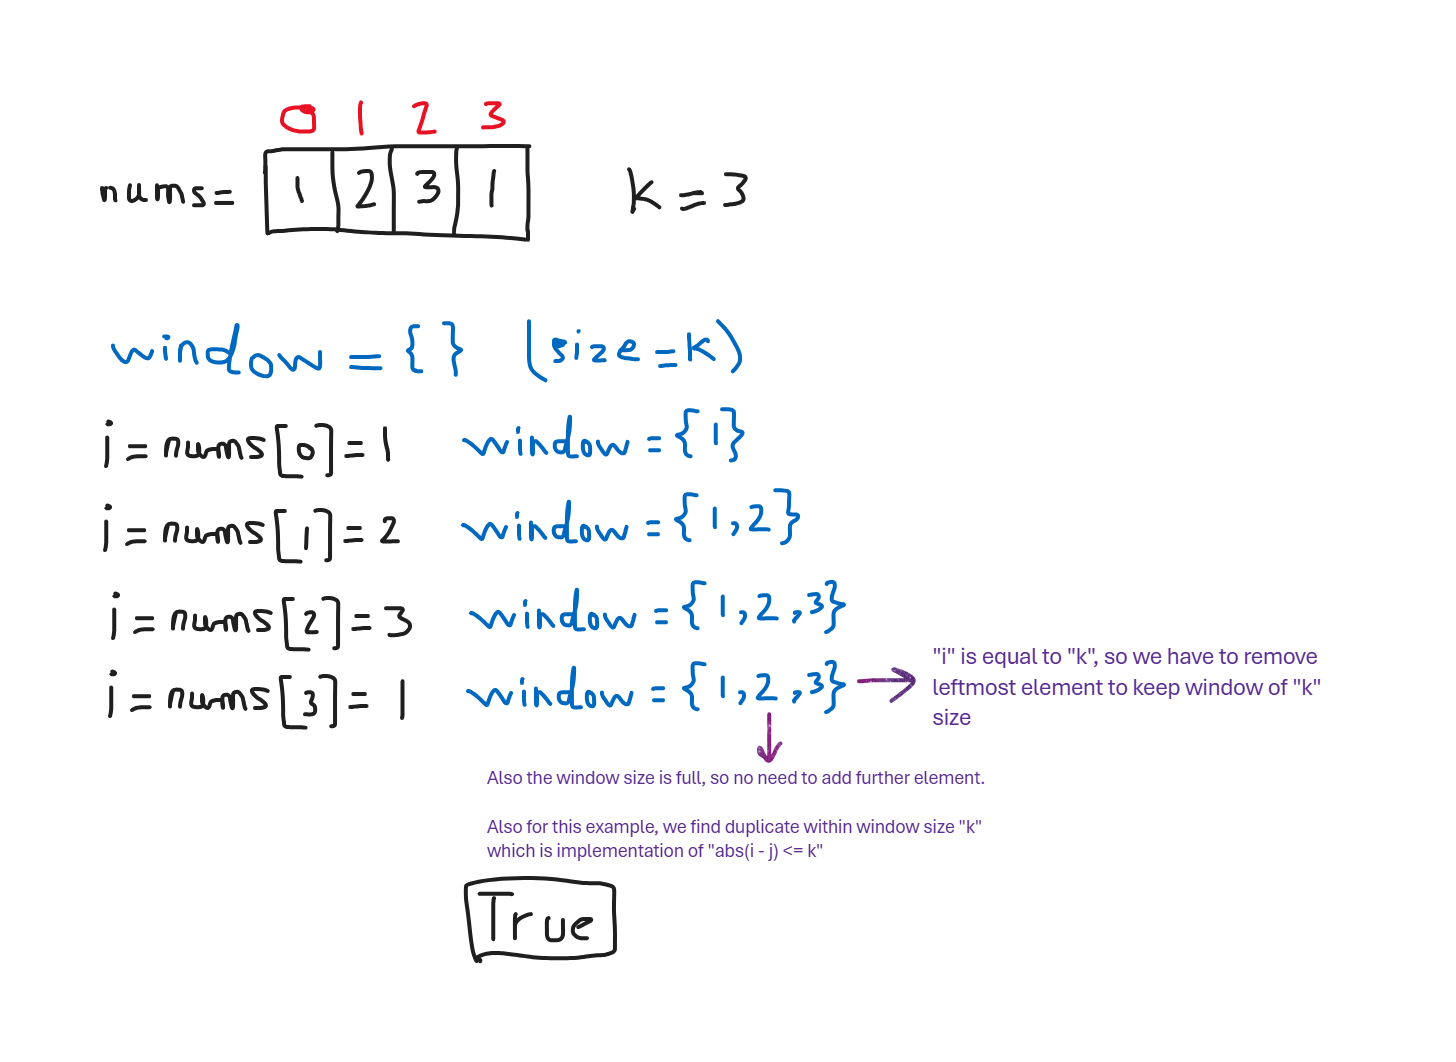 0 1 2 3
nums= 1 2 3 1 k = 3
window = { } (size=k)
i = nums[0]= 1 window = {1}
i = nums[1]= 2 window = {1,2}
i = nums[2]= 3 window = {1,2,3}
i = nums[3]= 1 window = {1,2,3}
"i" is equal to "k", so we have to remove
leftmost element to keep window of "k"
size
Also the window size is full, so no need to add further element.
Also for this example, we find duplicate within window size "k"
which is implementation of "abs(i - j) <= k"
True